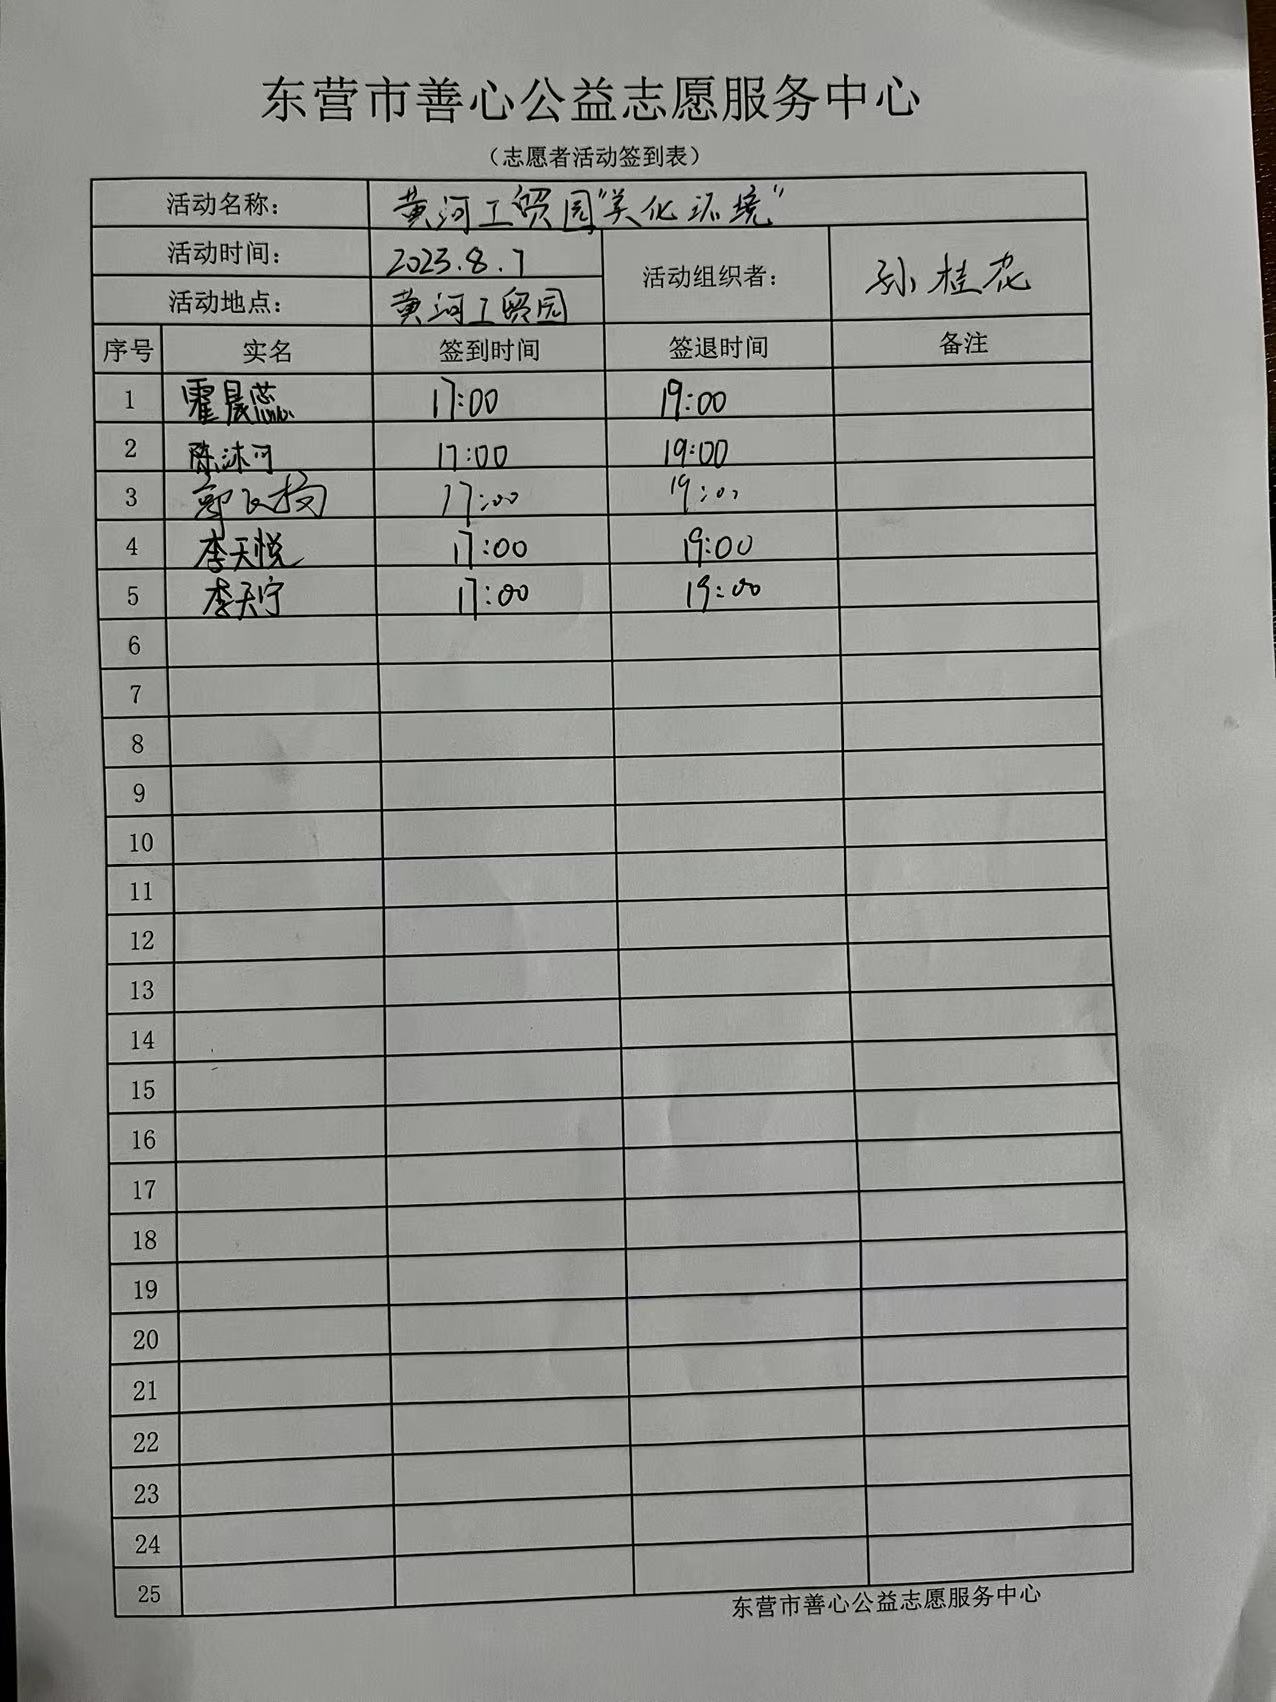 东营市善心公益志愿服务中心
（志愿者活动签到表）
活动名称： 黄河工贸园“美化环境”
活动时间： 2023.8.7 活动组织者： 孙桂花
活动地点： 黄河工贸园
序号 实名 签到时间 签退时间 备注
1 霍晨蕊 17:00 19:00
2 陈沐可 17:00 19:00
3 17:00 19:00
4 李天悦 17:00 19:00
5 李天宁 17:00 19:00
6
7
8
9
10
11
12
13
14
15
16
17
18
19
20
21
22
23
24
25
东营市善心公益志愿服务中心